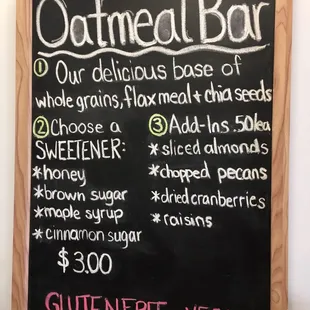 Oatmeal Bar
① Our delicious base of
whole grains, flaxmeal + chia seeds
② Choose a
SWEETENER:
*honey
*brown sugar
*maple syrup
*cinnamon sugar
$3.00
③ Add-Ins .50/ea
*sliced almonds
*chopped pecans
*dried cranberries
*raisins